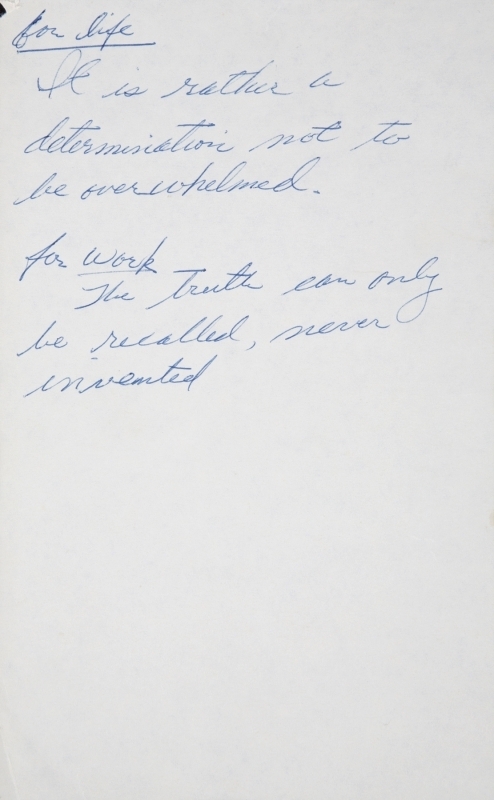 for life
It is rather a
determination not to
be overwhelmed.
for work
The truth can only
be recalled, never
invented